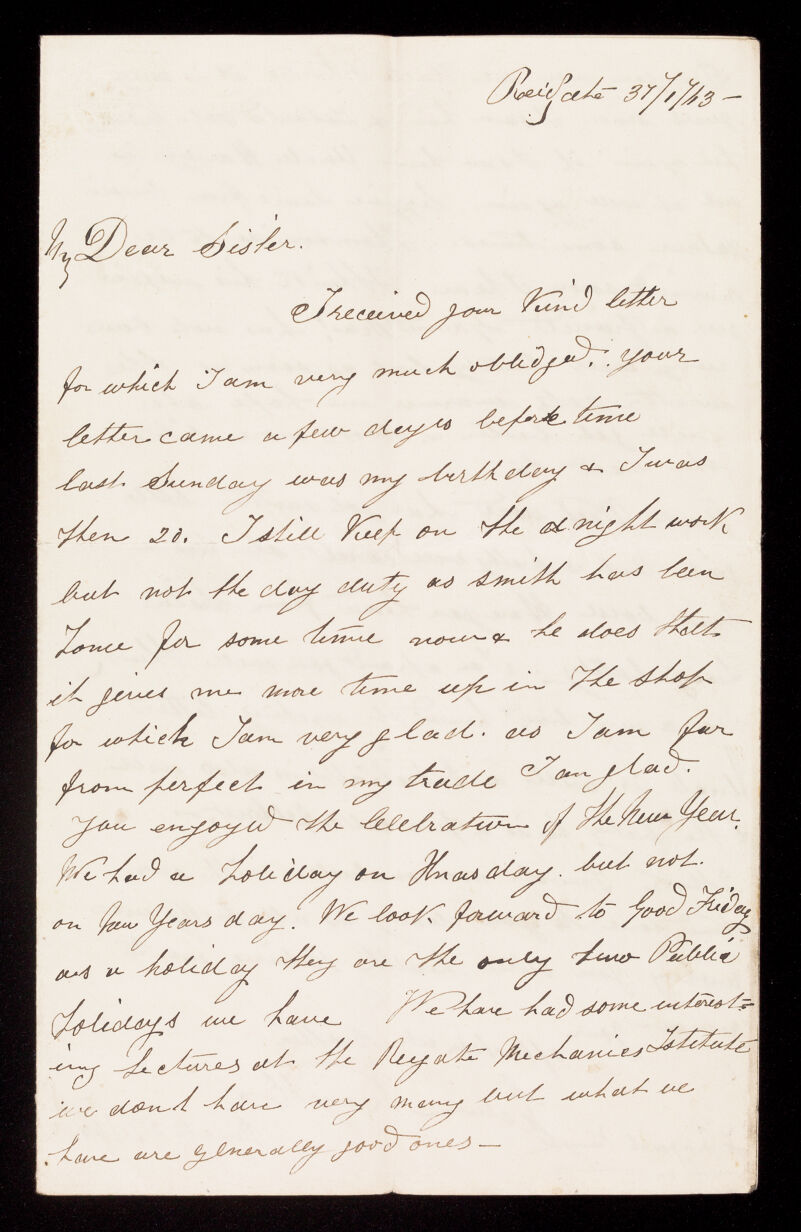 Reigate 31/1/63 –
My Dear Sister.
I received your kind letter
for which I am very much oblidged. your
letter came a few days before time
last Sunday was my birthday & I was
then 20. I still keep on the night work
but not the day duty as smith has been
home for some time now & he does that
it gives me more time up in the shop
for which I am very glad. as I am far
from perfect in my trade I am glad.
you engoyed the Celebration of the New Year.
We had a holiday on Xmas day. but not
on New Years day. We look forward to Good Friday
as a holiday they are the only two Public
holidays we have We have had some interest=
ing Lectures at the Reigate Mechanics Istitute
we dont have very many but what we
have are generally good ones –